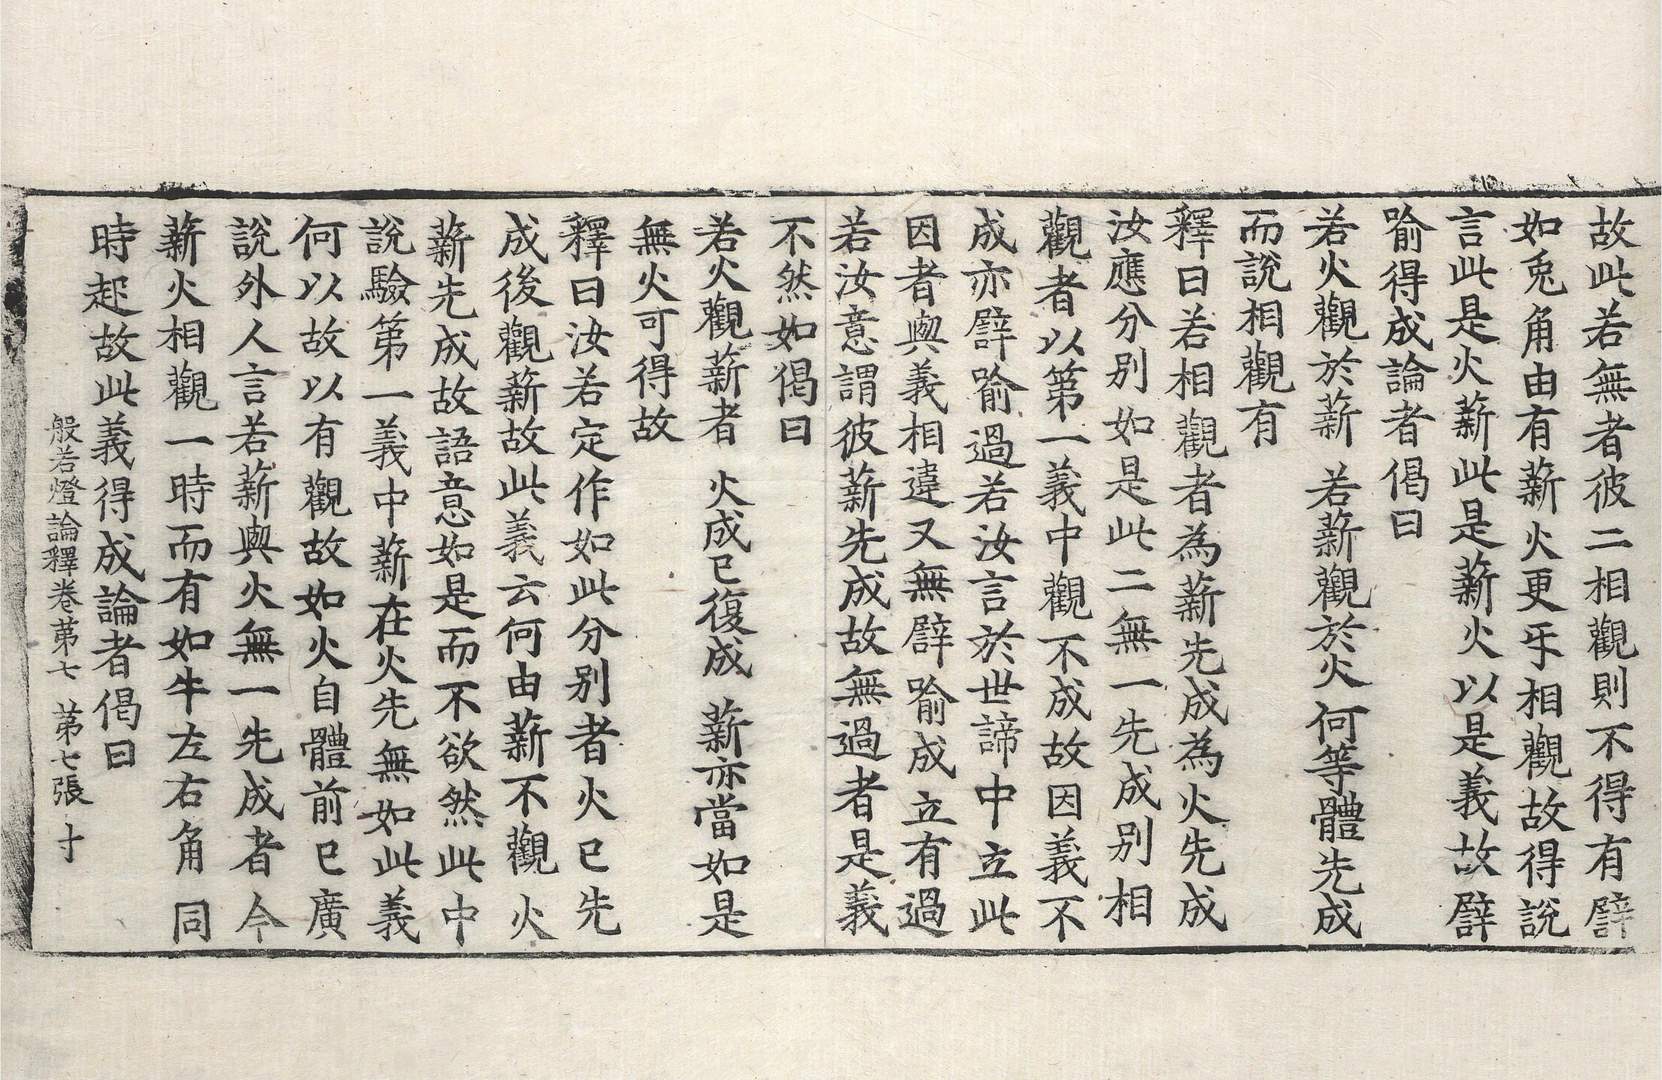 故此若無者彼二相觀則不得有譬
如兎角由有薪火更㸦相觀故得說
言此是火薪此是薪火以是義故譬
喻得成論者偈曰
若火觀於薪 若薪觀於火 何等體先成
而說相觀有
釋曰若相觀者為薪先成為火先成
汝應分別如是此二無一先成別相
觀者以第一義中觀不成故因義不
成亦譬喻過若汝言於世諦中立此
因者與義相違又無譬喻成立有過
若汝意謂彼薪先成故無過者是義
不然如偈曰
若火觀薪者 火成已復成 薪亦當如是
無火可得故
釋曰汝若定作如此分別者火已先
成後觀薪故此義云何由薪不觀火
薪先成故語意如是而不欲然此中
說驗第一義中薪在火先無如此義
何以故以有觀故如火自體前已廣
說外人言若薪與火無一先成者今
薪火相觀一時而有如牛左右角同
時起故此義得成論者偈曰
般若燈論釋卷苐七 苐七張 寸